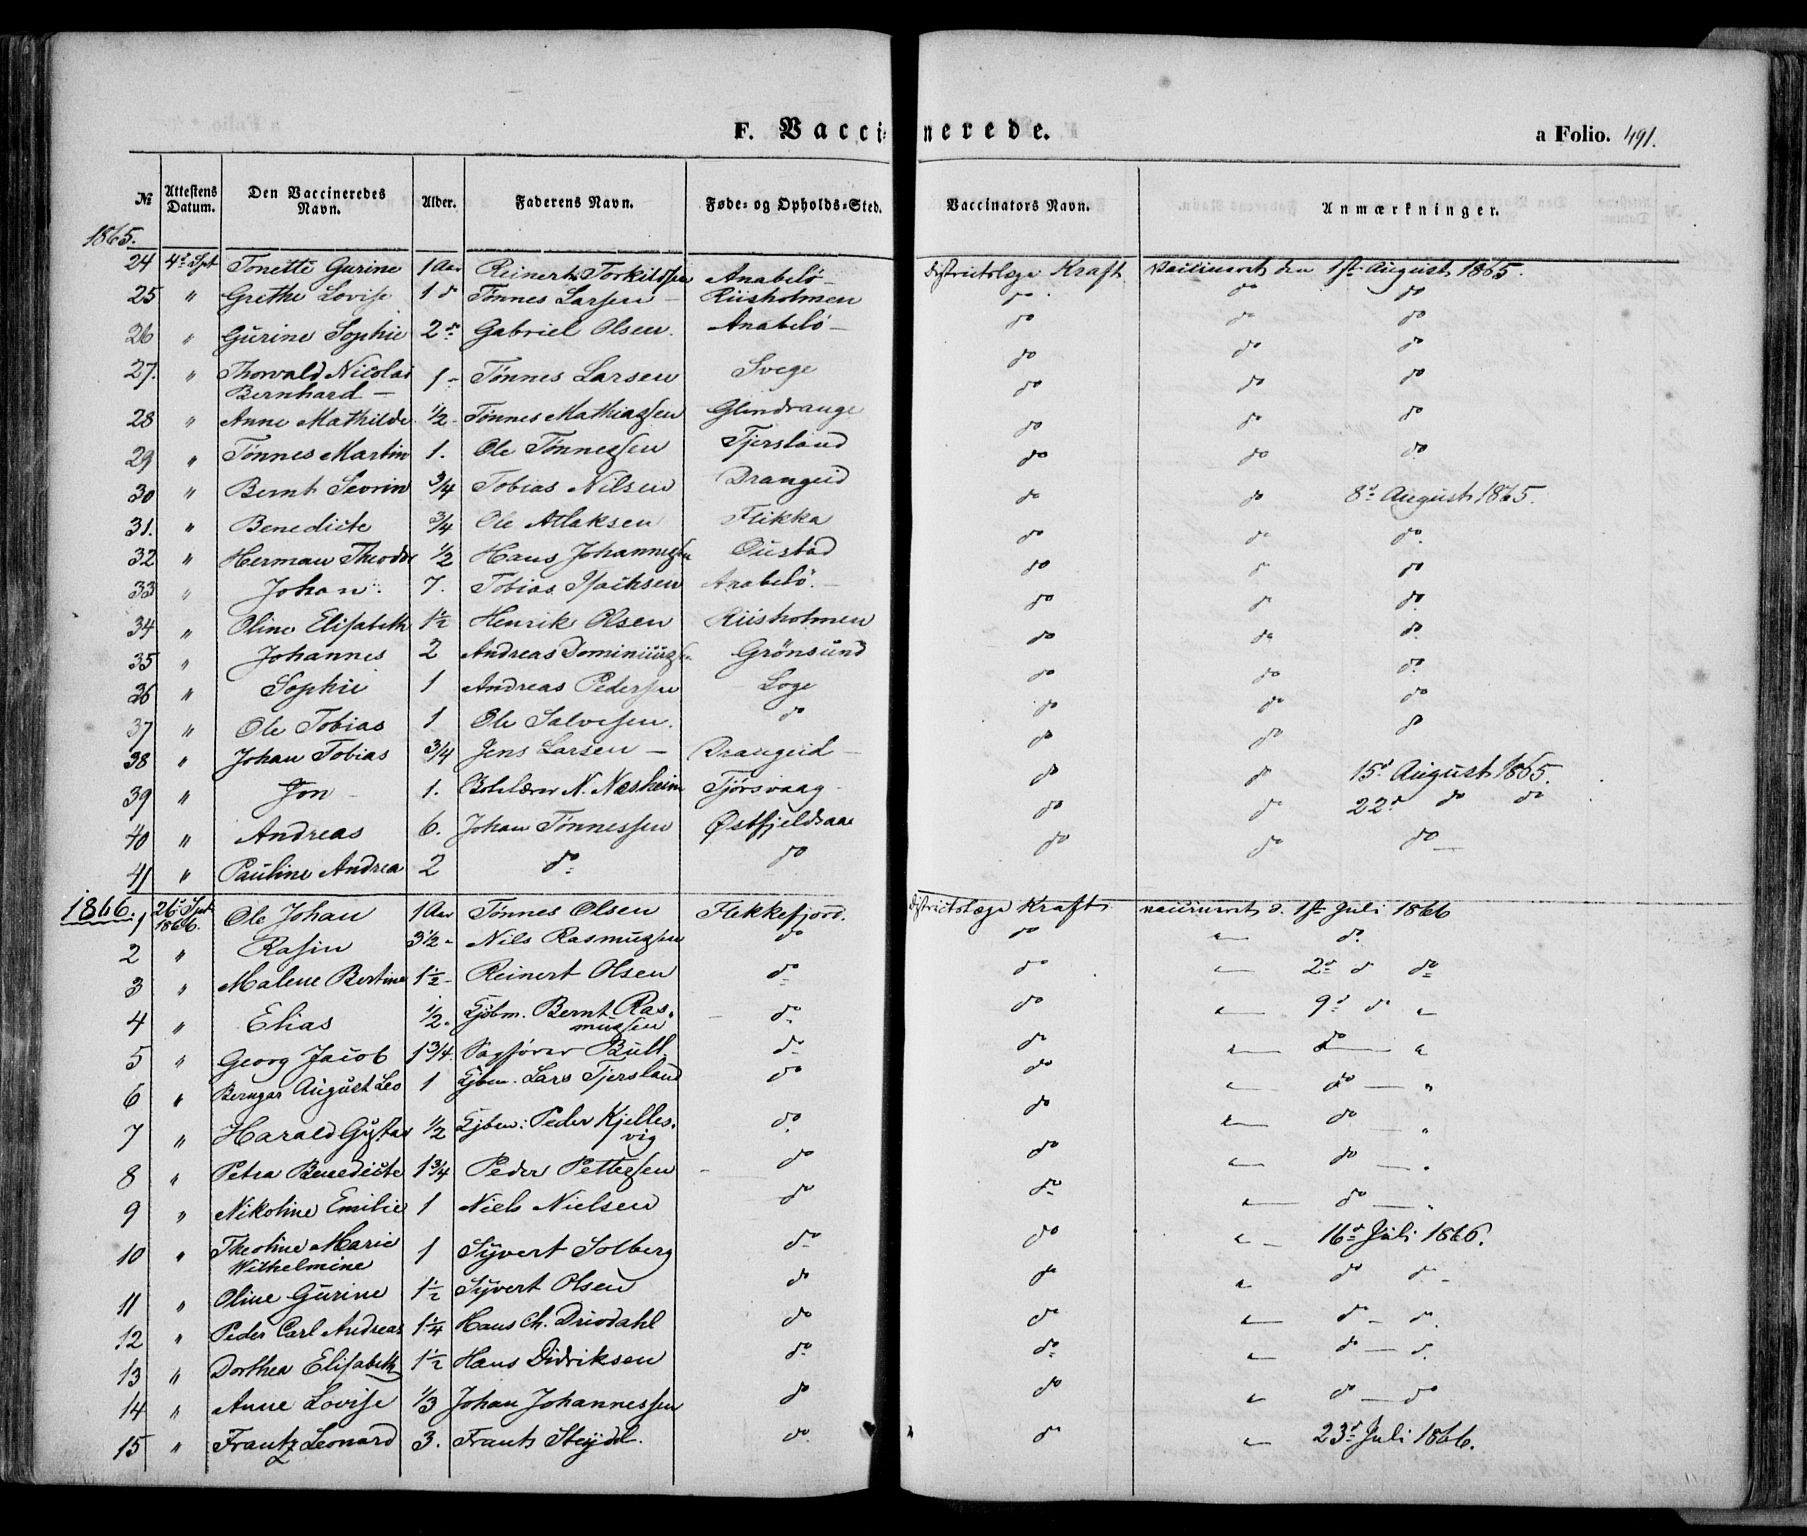 F. Vaccinerede.
a Folio. 491.
№ | Attestens Datum. | Den Vaccineredes Navn. | Alder. | Faderens Navn. | Føde- og Opholds-Sted. | Vaccinators Navn. | Anmærkninger.
1865.
24 | 4d Spt | Tonette Gurine | 1 Aar | Reinert Torkildsen | Anabelö | Districtslæge Kraft | Vaccineret den 1st August 1865.
25 | " | Grethe Lovise | 1 do | Tönnes Larsen | Riisholmen | do | do do
26 | " | Gurine Sophie | 2 do | Gabriel Olsen. | Anabelö | do | do do
27. | " | Thorvald Nicolai Bernhard | 1 | Tönnes Larsen | Svege | do | do do
28 | " | Anne Mathilde | 1/2 | Tönnes Mathiassen | Glendrange | do | do do
29 | " | Tönnes Martin | 1. | Ole Tönnessen | Tjersland | do | do do
30 | " | Bernt Sevrin | 3/4 | Tobias Nilsen | Drangeid | do | do do
31. | " | Benedicte | 3/4 | Ole Atlaksen | Flikka | do | do 8d August 1865.
32 | " | Herman Theodor | 1/2 | Hans Johannessen | Oustad | do | do do
33 | " | Johan | 7. | Tobias Isachsen | Anabelö. | do | do do
34 | " | Oline Elisabeth | 1 1/2 | Henrik Olsen | Riisholmen | do | do do
35 | " | Johannes | 2 | Andreas Dominicussen | Grönsund | do | do do
36 | " | Sophie | 1 | Andreas Pedersen | Loge | do | do do
37 | " | Ole Tobias | 1 | Ole Salvesen. | do | do | do do
38 | " | Johan Tobias | 3/4 | Jens Larsen | Drangeid | do | do do
39 | " | Jon | 1. | N. Næsheim | Tjörsvaag | do | do 15d August 1865.
40 | " | Andreas | 6. | Johan Tönnessen | Østfjeldsaa | do | do 22d do do
41 | " | Pauline Andrea | 2 | do | do | do | do do
1866.
1 | 26d Spt 1866. | Ole Johan | 1 Aar | Tönnes Olsen | Flekkefjord. | Districtslæge Kraft | vaccineret d. 1st Juli 1866
2 | " | Rasin | 3 1/2 | Nils Rasmussen | do | do | " do
3 | " | Malene Bertine | 1 1/2 | Reinert Olsen | do | do | " 2d do do
4 | " | Elias | 1/2. | Kjöbm. Bernt Rasmussen | do | do | " 9d do "
5 | " | Georg Jacob | 1 3/4. | Sagförer Bull | do | do | " do "
6 | " | August Leo | 1 | Kjbm. Lars Tjersland | do | do | " do "
7 | " | Harald Gustav | 1/2 | Kjbm: Peder Kjellesvig | do | do | " do "
8 | " | Petra Benedicte | 1 3/4 | Peder Pettersen | do | do | " do "
9 | " | Nikoline Emilie | 1 | Niels Nielsen | do | do | " do "
10 | " | Theoline Marie Wilhelmine | 1 | Syvert Solberg | do | do | " 16d Juli 1866.
11 | " | Oline Gurine | 1 1/2 | Syvert Olsen | do | do | " do do
12 | " | Peder Carl Andreas | 1 1/4 | Hans Ch. Driodahl | do | do | " do do
13 | " | Dorthea Elisabeth | 1 1/2 | Hans Didriksen | do | do | " do do
14 | " | Anne Lovise | 1/3 | Johan Johannessen | do | do | " do do
15 | " | Frantz Leonard | 3. | Frants | do | do | " 23d Juli 1866.